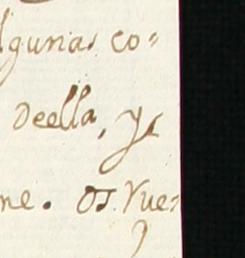 lgunas co=
Deella, y
me. os rue=